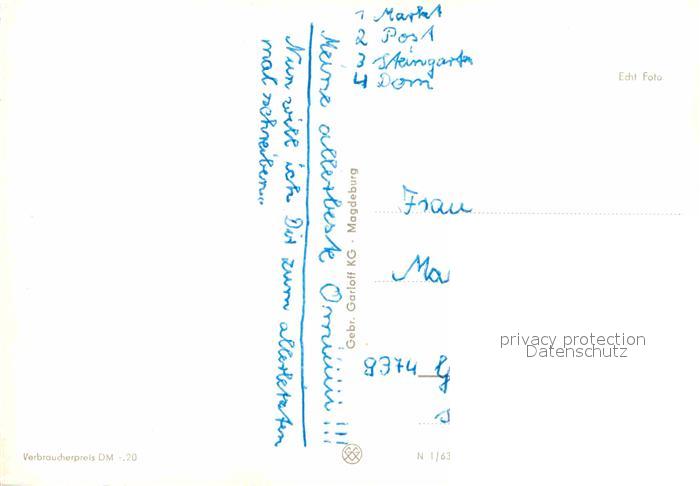 1 Markt
2 Post
3 Steingarten
4 Dom
Echt Foto
Meine allerbeste Omiiiiiii !!!
Nun will ich Dir zum allerletzten
mal schreiben...
Gebr. Garloff KG · Magdeburg
Frau
Ma
privacy protection
Datenschutz
9374
Verbraucherpreis DM -.20
N 1/63